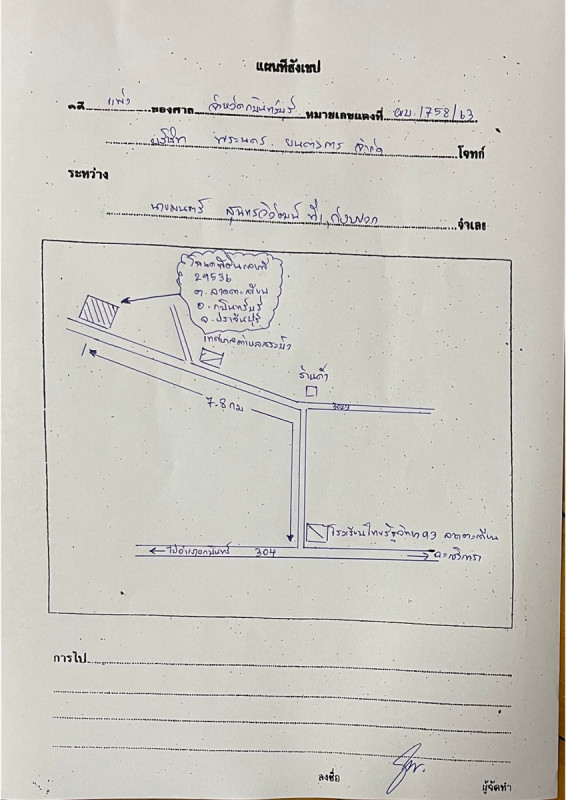 แผนที่สังเขป
คดี แพ่ง ของศาล จังหวัดกบินทร์บุรี หมายเลขแดงที่ ผบ. /758/63
บริษัท พระนคร ยนตรการ จำกัด โจทก์
ระหว่าง
นายมนตรี ที่ 1 จำเลย
โฉนดที่ดินเลขที่
29536
ต. ลาดตะเคียน
อ. กบินทร์บุรี
จ. ปราจีนบุรี
ร้านค้า
7.8 กม
โรงเรียนไทยรัฐวิทยา 93 ลาดตะเคียน
ไปอำเภอกบินทร์ 304 ฉะเชิงเทรา
การไป
ลงชื่อ ผู้จัดทำ